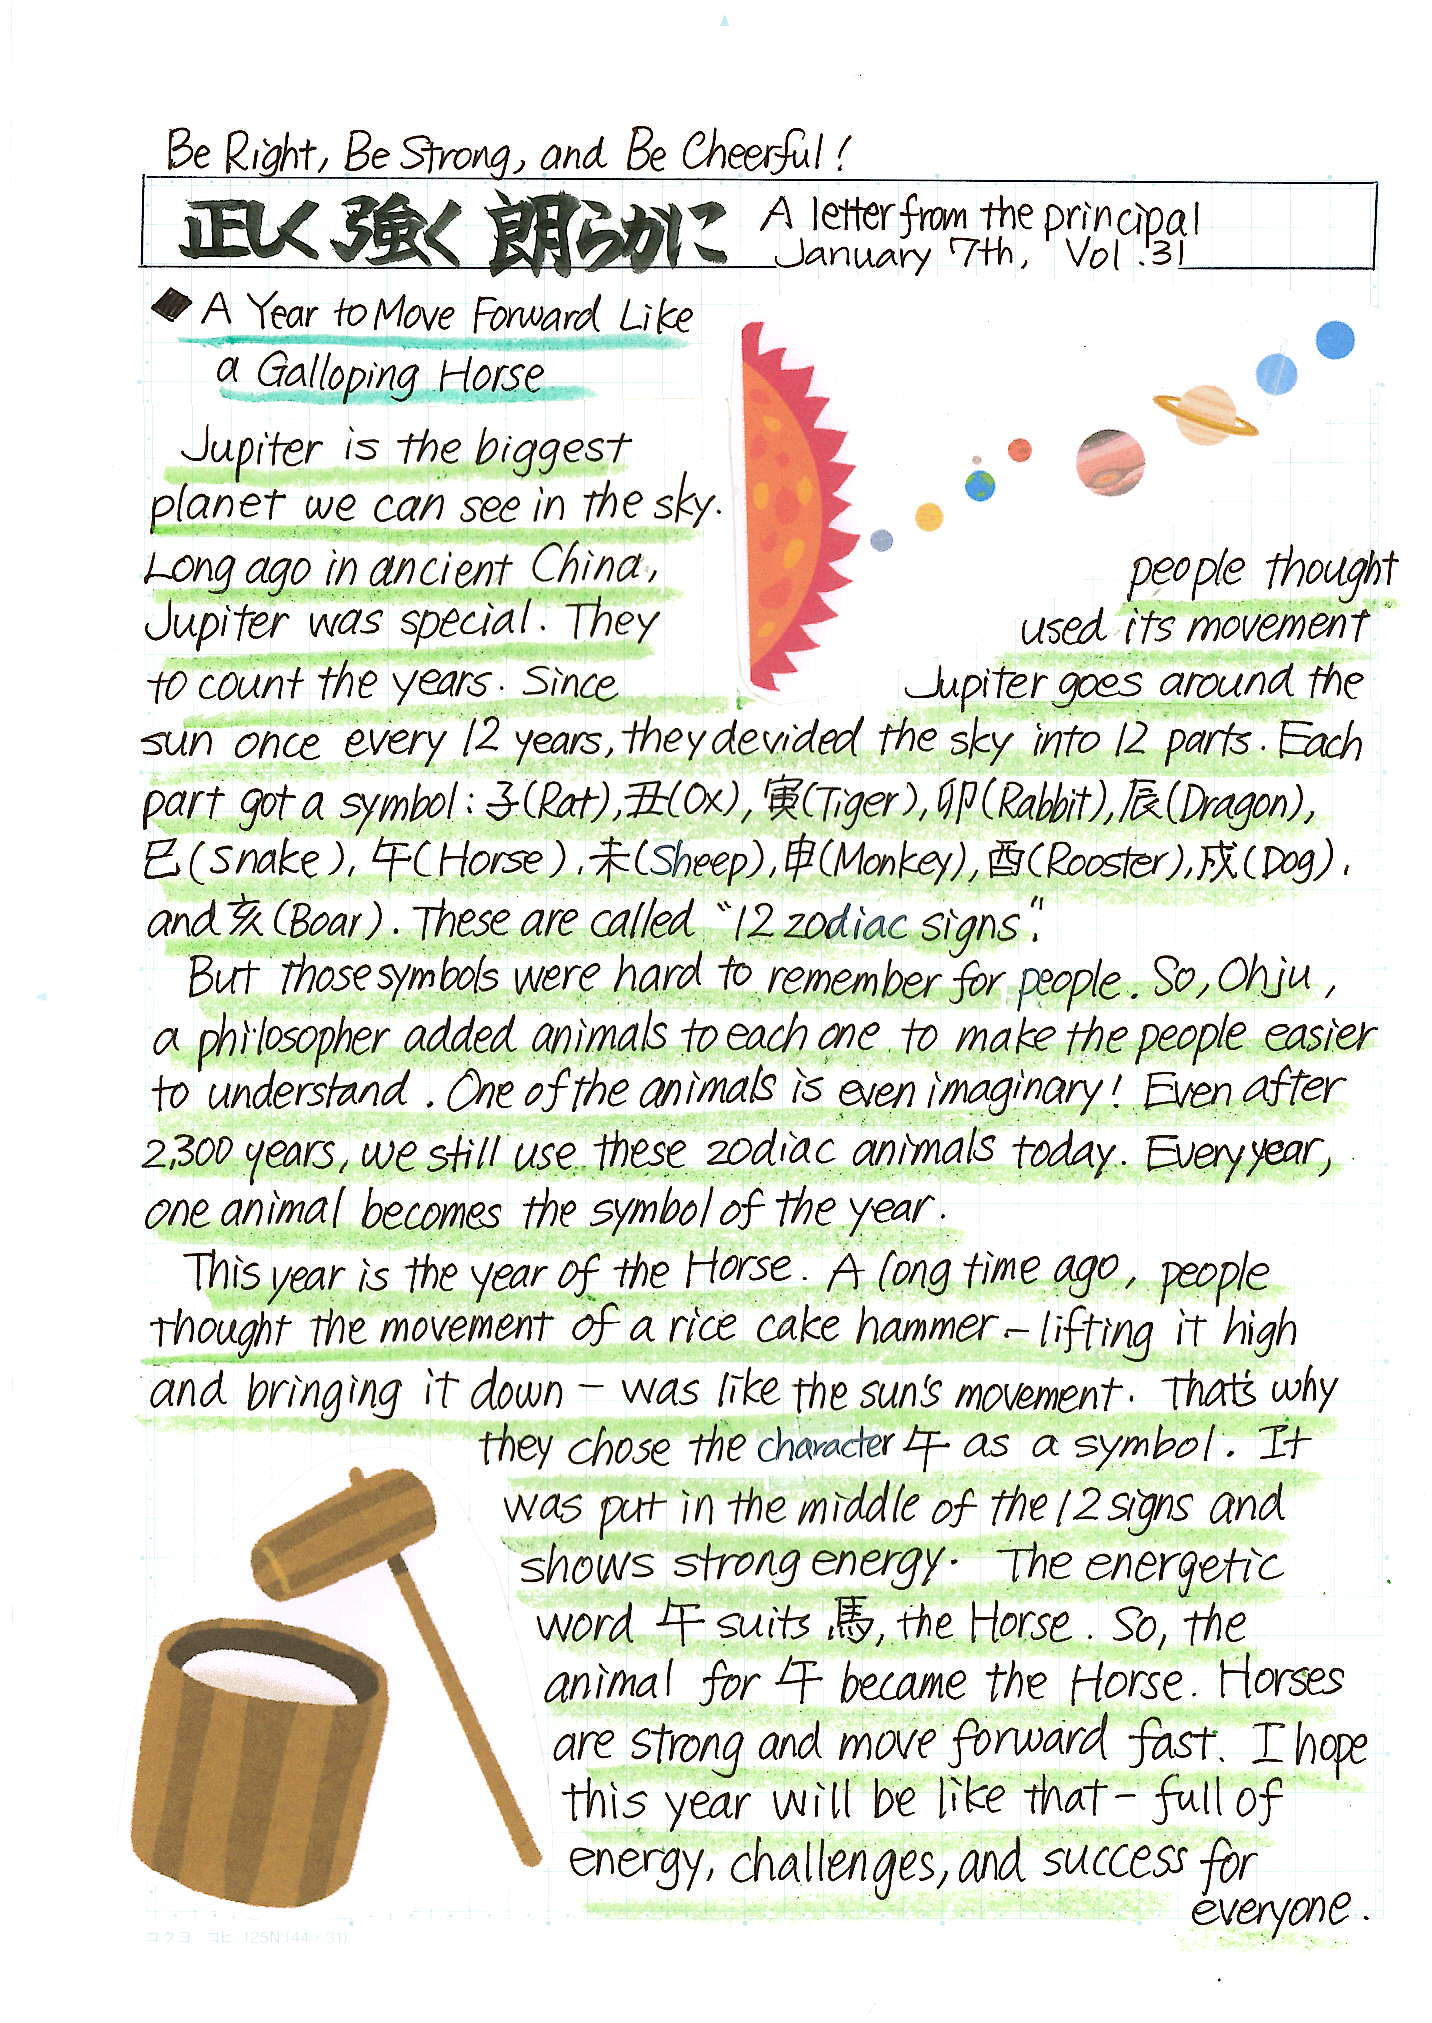 Be Right, Be Strong, and Be Cheerful!
正しく 強く 朗らかに
A letter from the principal
January 7th, Vol.31
◆ A Year to Move Forward Like
a Galloping Horse
Jupiter is the biggest
planet we can see in the sky.
Long ago in ancient China, people thought
Jupiter was special. They used its movement
to count the years. Since Jupiter goes around the
sun once every 12 years, they devided the sky into 12 parts. Each
part got a symbol: 子(Rat), 丑(Ox), 寅(Tiger), 卯(Rabbit), 辰(Dragon),
巳(Snake), 午(Horse), 未(Sheep), 申(Monkey), 酉(Rooster), 戌(Dog),
and 亥(Boar). These are called "12 zodiac signs".
But those symbols were hard to remember for people. So, Ohju,
a philosopher added animals to each one to make the people easier
to understand. One of the animals is even imaginary! Even after
2,300 years, we still use these zodiac animals today. Every year,
one animal becomes the symbol of the year.
This year is the year of the Horse. A long time ago, people
thought the movement of a rice cake hammer – lifting it high
and bringing it down – was like the sun's movement. That's why
they chose the character 午 as a symbol. It
was put in the middle of the 12 signs and
shows strong energy. The energetic
word 午 suits 馬, the Horse. So, the
animal for 午 became the Horse. Horses
are strong and move forward fast. I hope
this year will be like that – full of
energy, challenges, and success for
everyone.
コクヨ コヒ-125N(44×31)